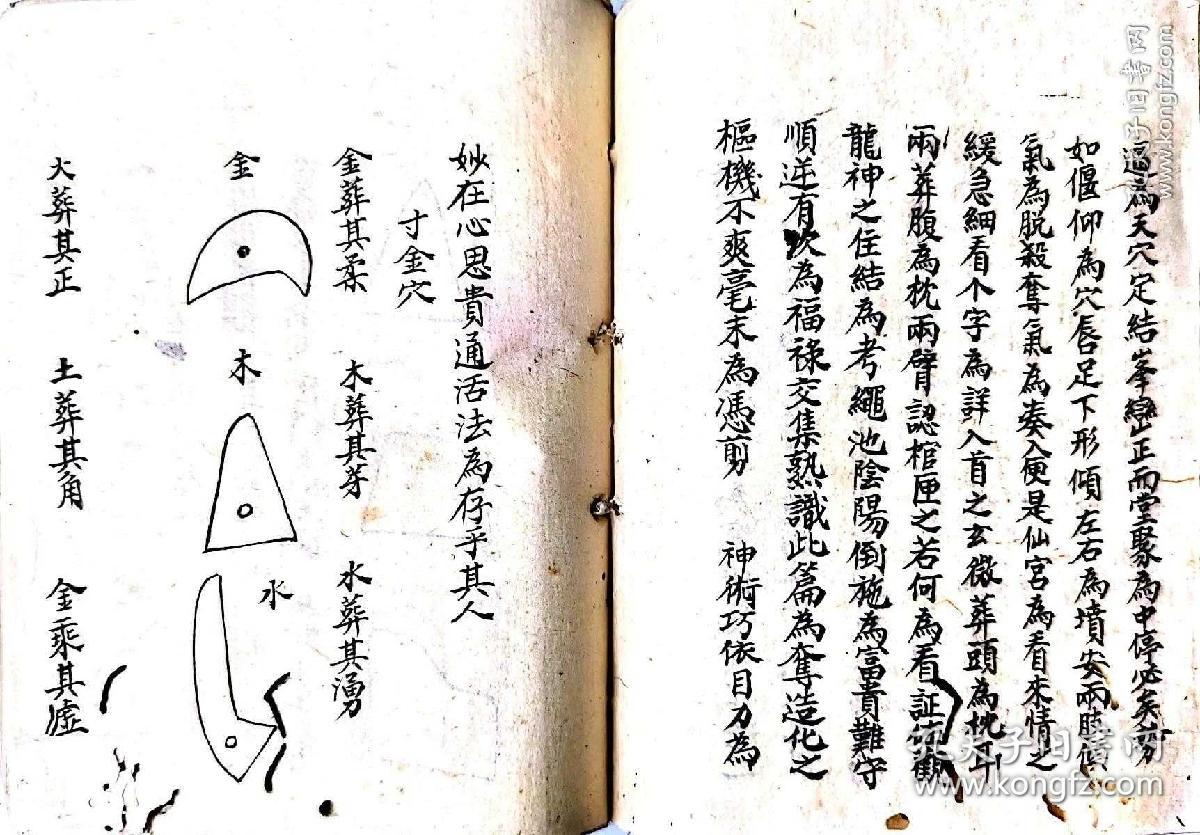 遍為天穴定結峯巒正而堂聚為中停必矣剪
如偃仰為穴唇足下形傾左右為墳安兩腋傾
氣為脫殺奪氣為奏入便是仙宮為看來情之
緩急細看个字為詳入首之玄微葬頭為枕耳
兩葬腹為枕兩臂認棺匣之若何為看証佐觀
龍神之住結為考繩池陰陽倒施為富貴難守
順逆有次為福祿交集熟識此篇為奪造化之
樞機不爽毫末為憑剪 神術巧依目力為
妙在心思貴通活法為存乎其人
寸金穴
金葬其柔 木葬其芽 水葬其湧
金
木
水
火葬其正 土葬其角 金乘其墟
孔夫子旧書网
www.kongfz.com
孔夫子旧書网
www.kongfz.com